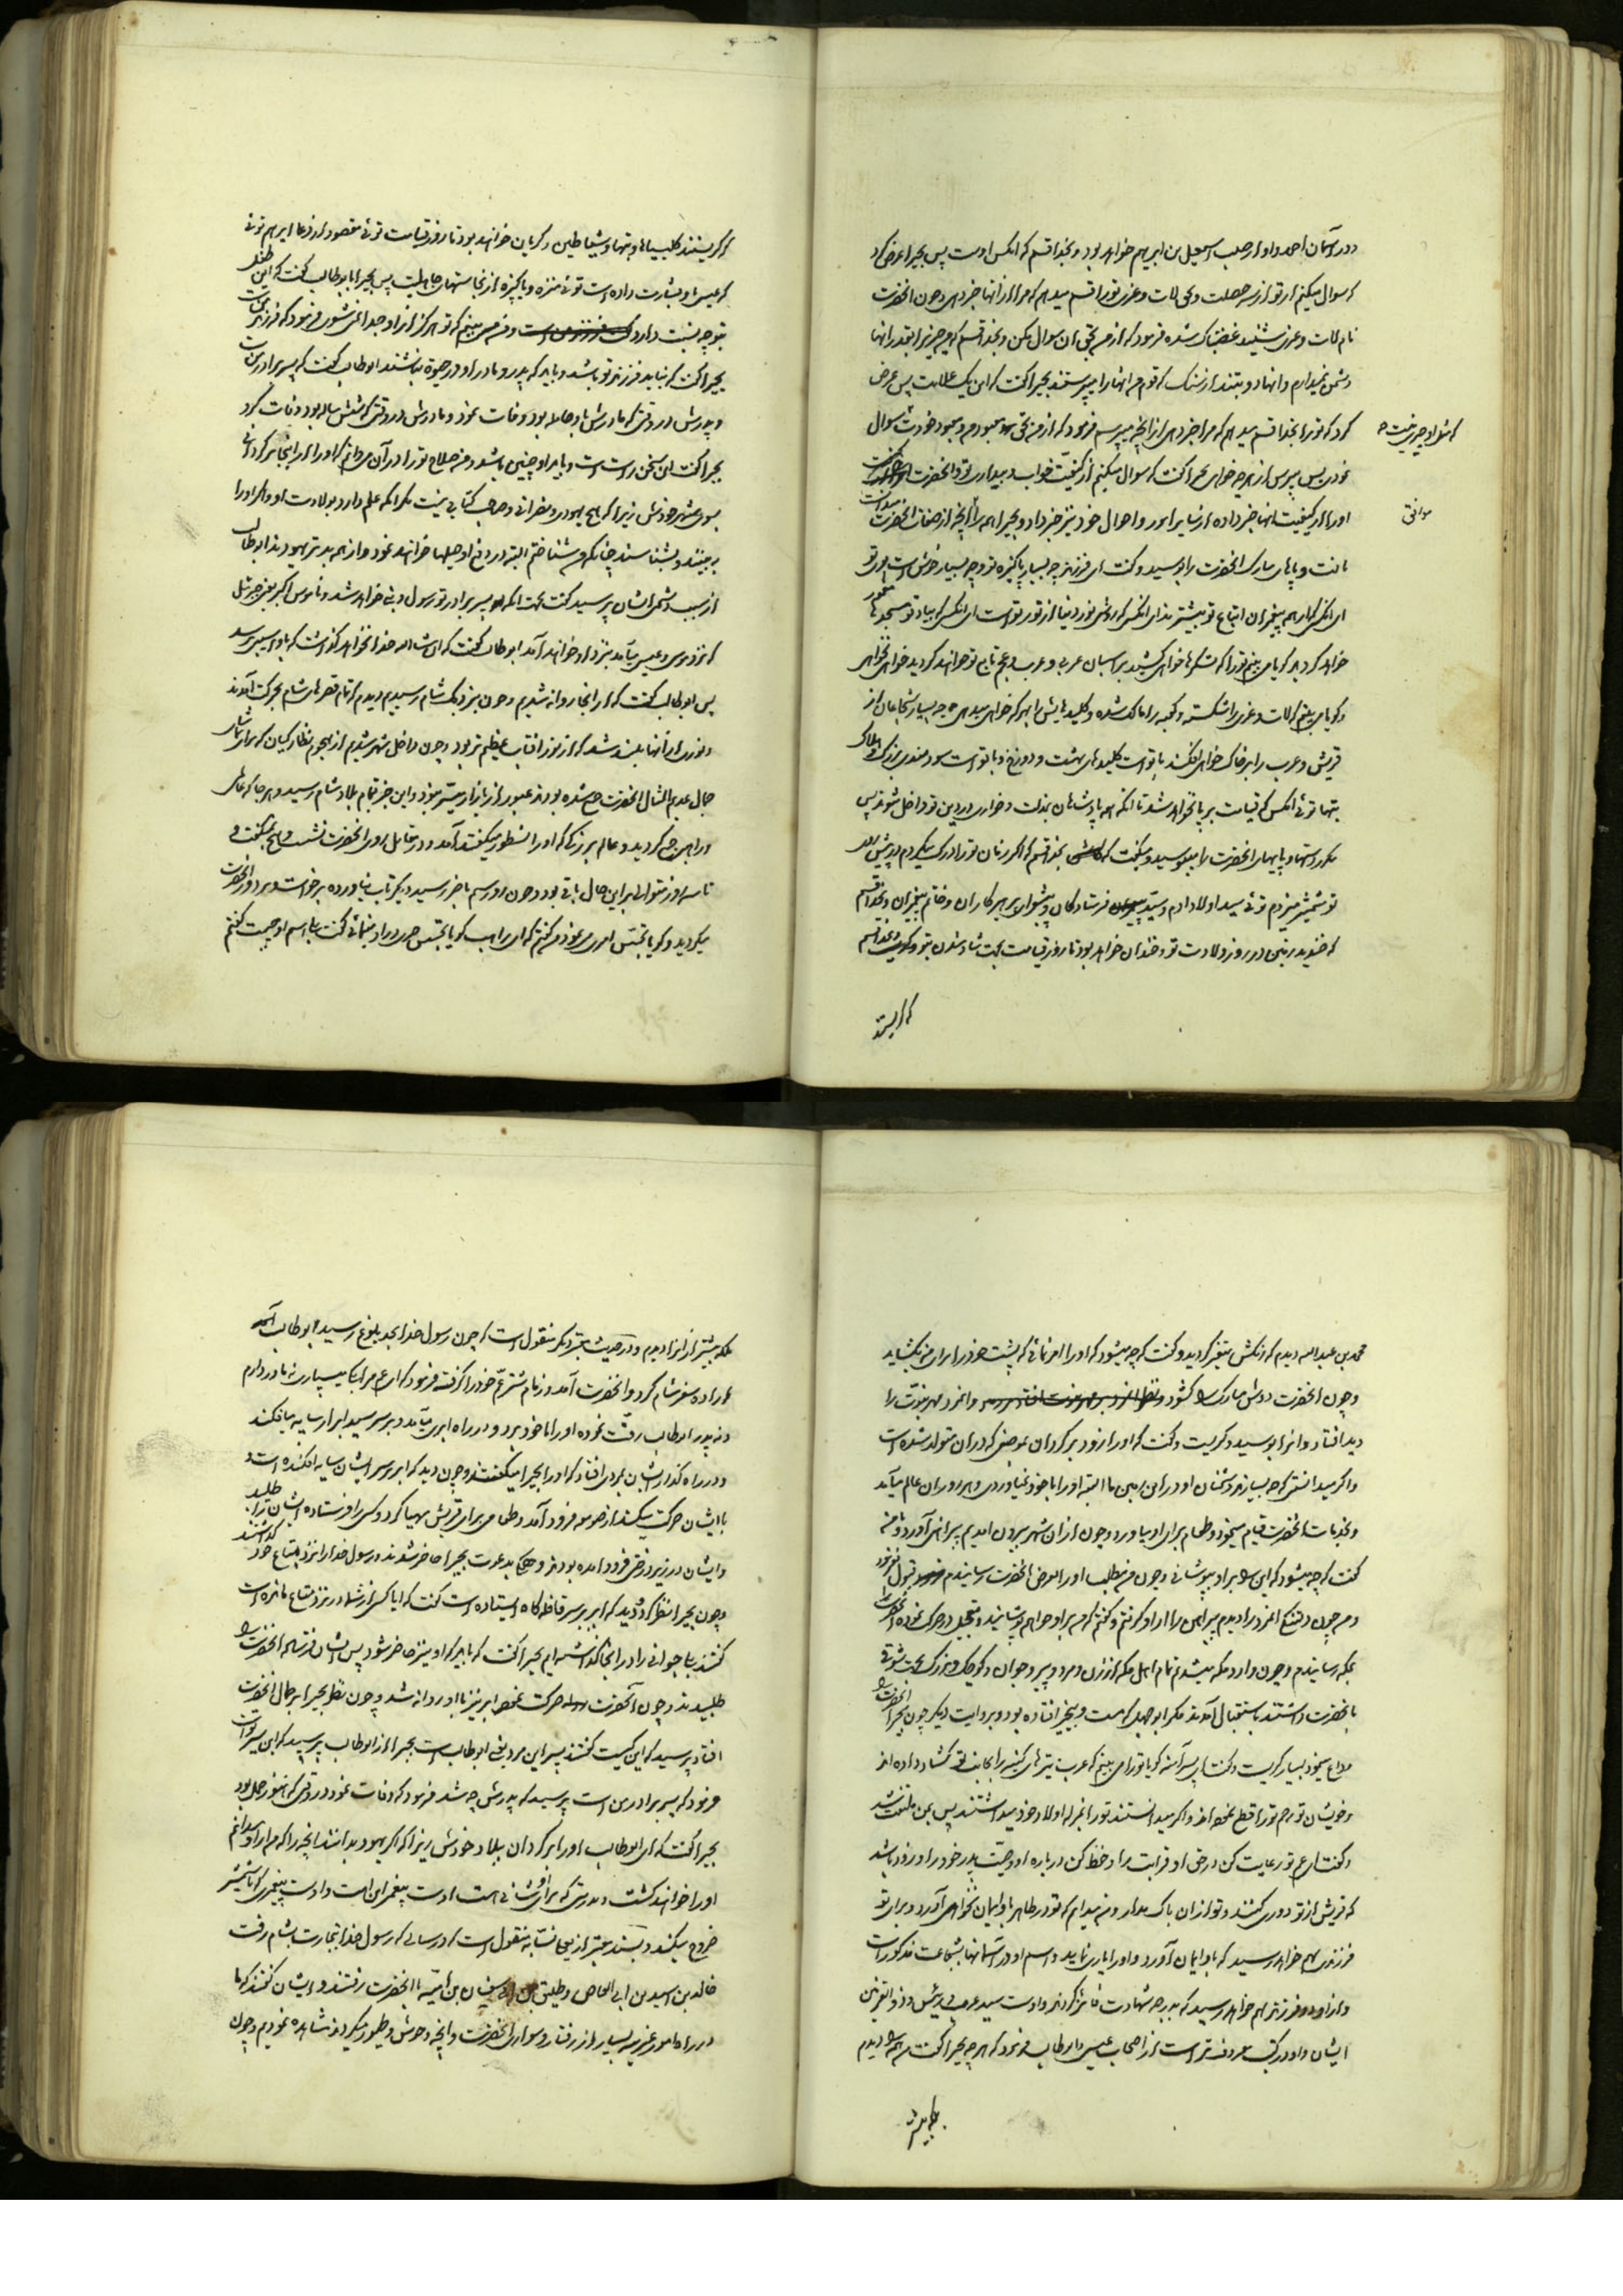 و در آسمان احمد و او از صلب اسمعیل بن ابراهیم خواهد بود و بخدا قسم که آنکس اوست پس بحیرا عرض کرد
که سوال میکنم از تو از سه خصلت و بحق لات و عزی تو را قسم میدهم که مرا از آنها خبر دهی و چون آنحضرت
نام لات و عزی شنید غضبناک شده فرمود که از من بحق ایشان سوال مکن و بخدا قسم که هیچ چیز را بقدر آنها
دشمن نمیدارم و آنها دو بتند از سنک که قوم من آنها را میپرستند بحیرا گفت که این یک علامت پس عرض
کرد که تو را بخدا قسم میدهم که مرا خبر دهی از آنچه میپرسم فرمود که از من بحق معبود من و معبود خودت سوال
که مثل او چیزی نیست
نمودی پس بپرس از هر چه خواهی بحیرا گفت که سوال میکنم از کیفیت خواب و بیداری تو و آنحضرت
او را از کیفیت آنها خبر داده از سایر امور و احوال خود نیز خبر داد و بحیرا همه را با آنچه از صفات آنحضرت میدانست
موافق
یافت و پاهای مبارک آنحضرت را بوسید و گفت ای فرزند چه بسیار پاکیزه تو و چه بسیار خوش است بوی تو
ای آنکس که از همه پیغمبران اتباع تو بیشترند ای آنکس که روشنی نور دنیا از نور تو است ای آنکس که بیاد تو مسجدها معمور
خواهد کردید گویا می بینم تو را که لشکرها خواهی کشید بر اسبان عربی و عرب و عجم تابع تو خواهند کردید خواهی نخواهی
و گویا می بینم که لات و عزی را شکسته و کعبه را مالک شده و کلیدهایش را بهر که خواهی میدهی چه بسیار شجاعان از
قریش و عرب را بر خاک خواهی افکند با تو است کلیدهای بهشت و دوزخ و با تو است سودمندی بزرک و هلاک
بتها توئی آنکس که قیامت بر پا نخواهد شد تا آنکه همه پادشاهان بمذلت و خواری در دین تو داخل شوند پس
مکرر دستها و پاهای آنحضرت را میبوسید و میگفت که بخدا قسم که اگر زمان تو را درک میکردم در پیش روی
تو شمشیر میزدم توئی سید اولاد آدم و سید فرستادکان و پیشوای پرهیزکاران و خاتم پیغمبران و بخدا قسم
که خندید زمین در روز ولادت تو و خندان خواهد بود تا روز قیامت بجهت شاد شدن بتو و بخدا قسم
که گریستند
که گریستند کلیسیاها و بتها و شیاطین و گریان خواهند بود تا روز قیامت توئی مقصود از دعای ابراهیم توئی
که عیسی باو بشارت داده است توئی منزه و پاکیزه از نجاستهای جاهلیت پس بحیرا با بوطالب گفت که این طفل
بتو چه نسبت دارد و من می بینم که تو هرگز از او جدا نمیشوی فرمود که فرزند منست
بحیرا گفت که نباید فرزند تو باشد و باید که پدر و مادر او در حیوة نباشند ابوطالب گفت که پسر برادر منست
و پدرش در وقتی که مادرش باو حامله بود وفات نمود و مادرش در وقتی که شش ساله بود وفات کرد
بحیرا گفت این سخن راست است و باید او چنین باشد و من صلاح تو را در آن میدانم که او را از اینجا برگردانی
بسوی شهر خودش زیرا که هیچ یهودی و نصرانی و صاحب کتابی نیست مگر آنکه علم دارد بولادت او و اگر او را
ببینند و بشناسند چنانکه من شناختم البته در دفع او حیلها خواهند نمود و از همه بدتر یهودند ابوطالب
از سبب دشمنی ایشان پرسید گفت بجهت آنکه پسر برادر تو رسول و نبی خواهد شد و ناموس اکبر یعنی جبرئیل
که نزد موسی و عیسی میآمد نزد او خواهد آمد ابوطالب گفت که انشاءالله خدا نخواهد گذاشت که باو آسیبی برسد
پس ابوطالب گفت که از آنجا روانه شدیم و چون بنزدیک شام رسیدیم دیدم که تمام قصرهای شام بحرکت آمدند
و نوری از آنها بلند شد که از نور آفتاب عظیم تر بود و چون داخل شهر شدیم از هجوم نظارکیان که برای تماشای
جمال عدیم المثال آنحضرت جمع شده بودند عبور از بازار میسر نبود و این خبر بتمام بلاد شام رسید و هر جا که عالمی
و راهبی بود جمع گردید و عالم بزرگی که او را نسطور میگفتند آمد و در مقابل روی آنحضرت نشست و هیچ نمیگفت و
تا سه روز متوالی بر این حال باقی بود و چون روز سیم بآخر رسید دیگر تاب نیاورده برخاست و بر دور آنحضرت
میگردید و گویا تجسس امری مینمود من گفتم که ای راهب گویا تجسس چیزی در او مینمائی گفت بلی اسم او چیست گفتم
محمد بن عبدالله دیدم که رنگش متغیر گردید و گفت که چه میشود که او را امر نمائی که پشت خود را برای من بگشاید
و چون آنحضرت دوش مبارک را گشود و آنمرد مهر نبوت را
دید افتاد و آنرا بوسید و گریست و گفت که او را زود برگردان بموضعی که در آن متولد شده است
و اگر میدانستی که چه بسیارند دشمنان او در این زمین ما البته او را با خود نمیآوردی و هر روز آن عالم میآمد
و بخدمات آنحضرت قیام مینمود و طعام برای او میآورد و چون از آن شهر بیرون آمدیم پیراهنی آورد و بمن
گفت که چه میشود که این را باو بپوشانی و چون من مطلب او را بعرض آنحضرت رسانیدم قبول نفرمود
و من چون دلتنگی آنمرد را دیدم پیراهن را از او گرفتم و گفتم که من باو خواهم پوشانید و بتعجیل در حرکت نموده آنحضرت را
بمکه رسانیدم و چون وارد مکه میشدم تمام اهل مکه از زن و مرد و پیر و جوان و کوچک و بزرک بجهت شوقی که
بآنحضرت داشتند باستقبال آمدند مگر ابوجهل که مست و بیخبر افتاده بود و بروایت دیگر چون بحیرا آنحضرت را
وداع مینمود بسیار گریست و گفت ای پسر آمنه گویا تو را می بینم که عرب تیرهای کینه را بجانب تو گشاد داده اند
و خویشان تو رحم تو را قطع نموده اند و اگر میدانستند تو را بمنزله اولاد خود میداشتند پس بمن ملتفت شد
و گفت ای عم تو رعایت کن در حق او قرابت را و حفظ کن درباره او وصیت پدر خود را و زود باشد
که قریش از تو دوری کنند و تو از آن باک مدار و من میدانم که تو در ظاهر باو ایمان نخواهی آورد و برای تو
فرزندی بهم خواهد رسید که باو ایمان آورد و او را یاری نماید و اسم او در آسمانها بشجاعت مذکور است
و از او دو فرزند بهم خواهد رسید که بدرجه شهادت فائز گردند و اوست سید عرب و رئیس و ذوالقرنین
ایشان و او در کتب معروفتر است از اصحاب عیسی و ابوطالب فرمود که هر چه بحیرا گفت من همه را دیدم
بلکه بیشتر
بلکه بیشتر از آنرا دیدم و در حدیث معتبر دیگر منقول است که چون رسول خدا بحد بلوغ رسید و ابوطالب
اراده سفر شام کرد و آنحضرت آمد و زمام شتر عم خود را گرفته فرمود که ای عم مرا بکه میسپاری نه مادر دارم
و نه پدر ابوطالب رقت نموده او را با خود برد و در راه ابری میآمد و بر سر سید ابرار سایه میافکند
و در راه گذار ایشان بمردی افتاد که او را بحیرا میگفتند و چون دید که ابر بر سر ایشان سایه افکنده است و
با ایشان حرکت میکند از صومعه فرود آمد و طعامی برای قریش مهیا کرد و کسی را فرستاده ایشان را طلبید
و ایشان در زیر درختی فرود آمده بودند و همگی بدعوت بحیرا حاضر شدند و رسول خدا را نزد متاع خود گذاشتند
و چون بحیرا نظر کرد و دید که ابر بر سر قافله گاه ایستاده است گفت که آیا کسی از شما در نزد متاع مانده است
گفتند بلی جوانی را در آنجا گذاشته ایم بحیرا گفت که باید که او نیز حاضر شود پس ایشان فرستاده آنحضرت را
طلبیدند و چون آنحضرت حرکت نمود ابر نیز با او روانه شد و چون نظر بحیرا بر جمال آنحضرت
افتاد پرسید که این کیست گفتند پسر این مرد یعنی ابوطالب است بحیرا از ابوطالب پرسید که این پسر تو است
فرمود که پسر برادر من است پرسید که پدرش چه شد فرمود که وفات نمود در وقتی که هنوز حمل بود
بحیرا گفت که ای ابوطالب او را برگردان ببلاد خودش زیرا که اگر یهود بدانند آنچه را که من از او میدانم
او را خواهند کشت و بدرستی که برای او شانی هست اوست پیغمبر این امت و اوست پیغمبری که با شمشیر
خروج میکند و بسند معتبر از یعلی نسابه منقول است که در سالی که رسول خدا بتجارت شام رفت
خالد بن اسید بن ابی العاص و طلیق بن ابی سفیان بن امیه با آنحضرت رفتند و ایشان گفتند که ما
در راه امور غریبه بسیار از رفتار و سواری آنحضرت و آنچه وحوش و طیور میکردند مشاهده نمودیم و چون